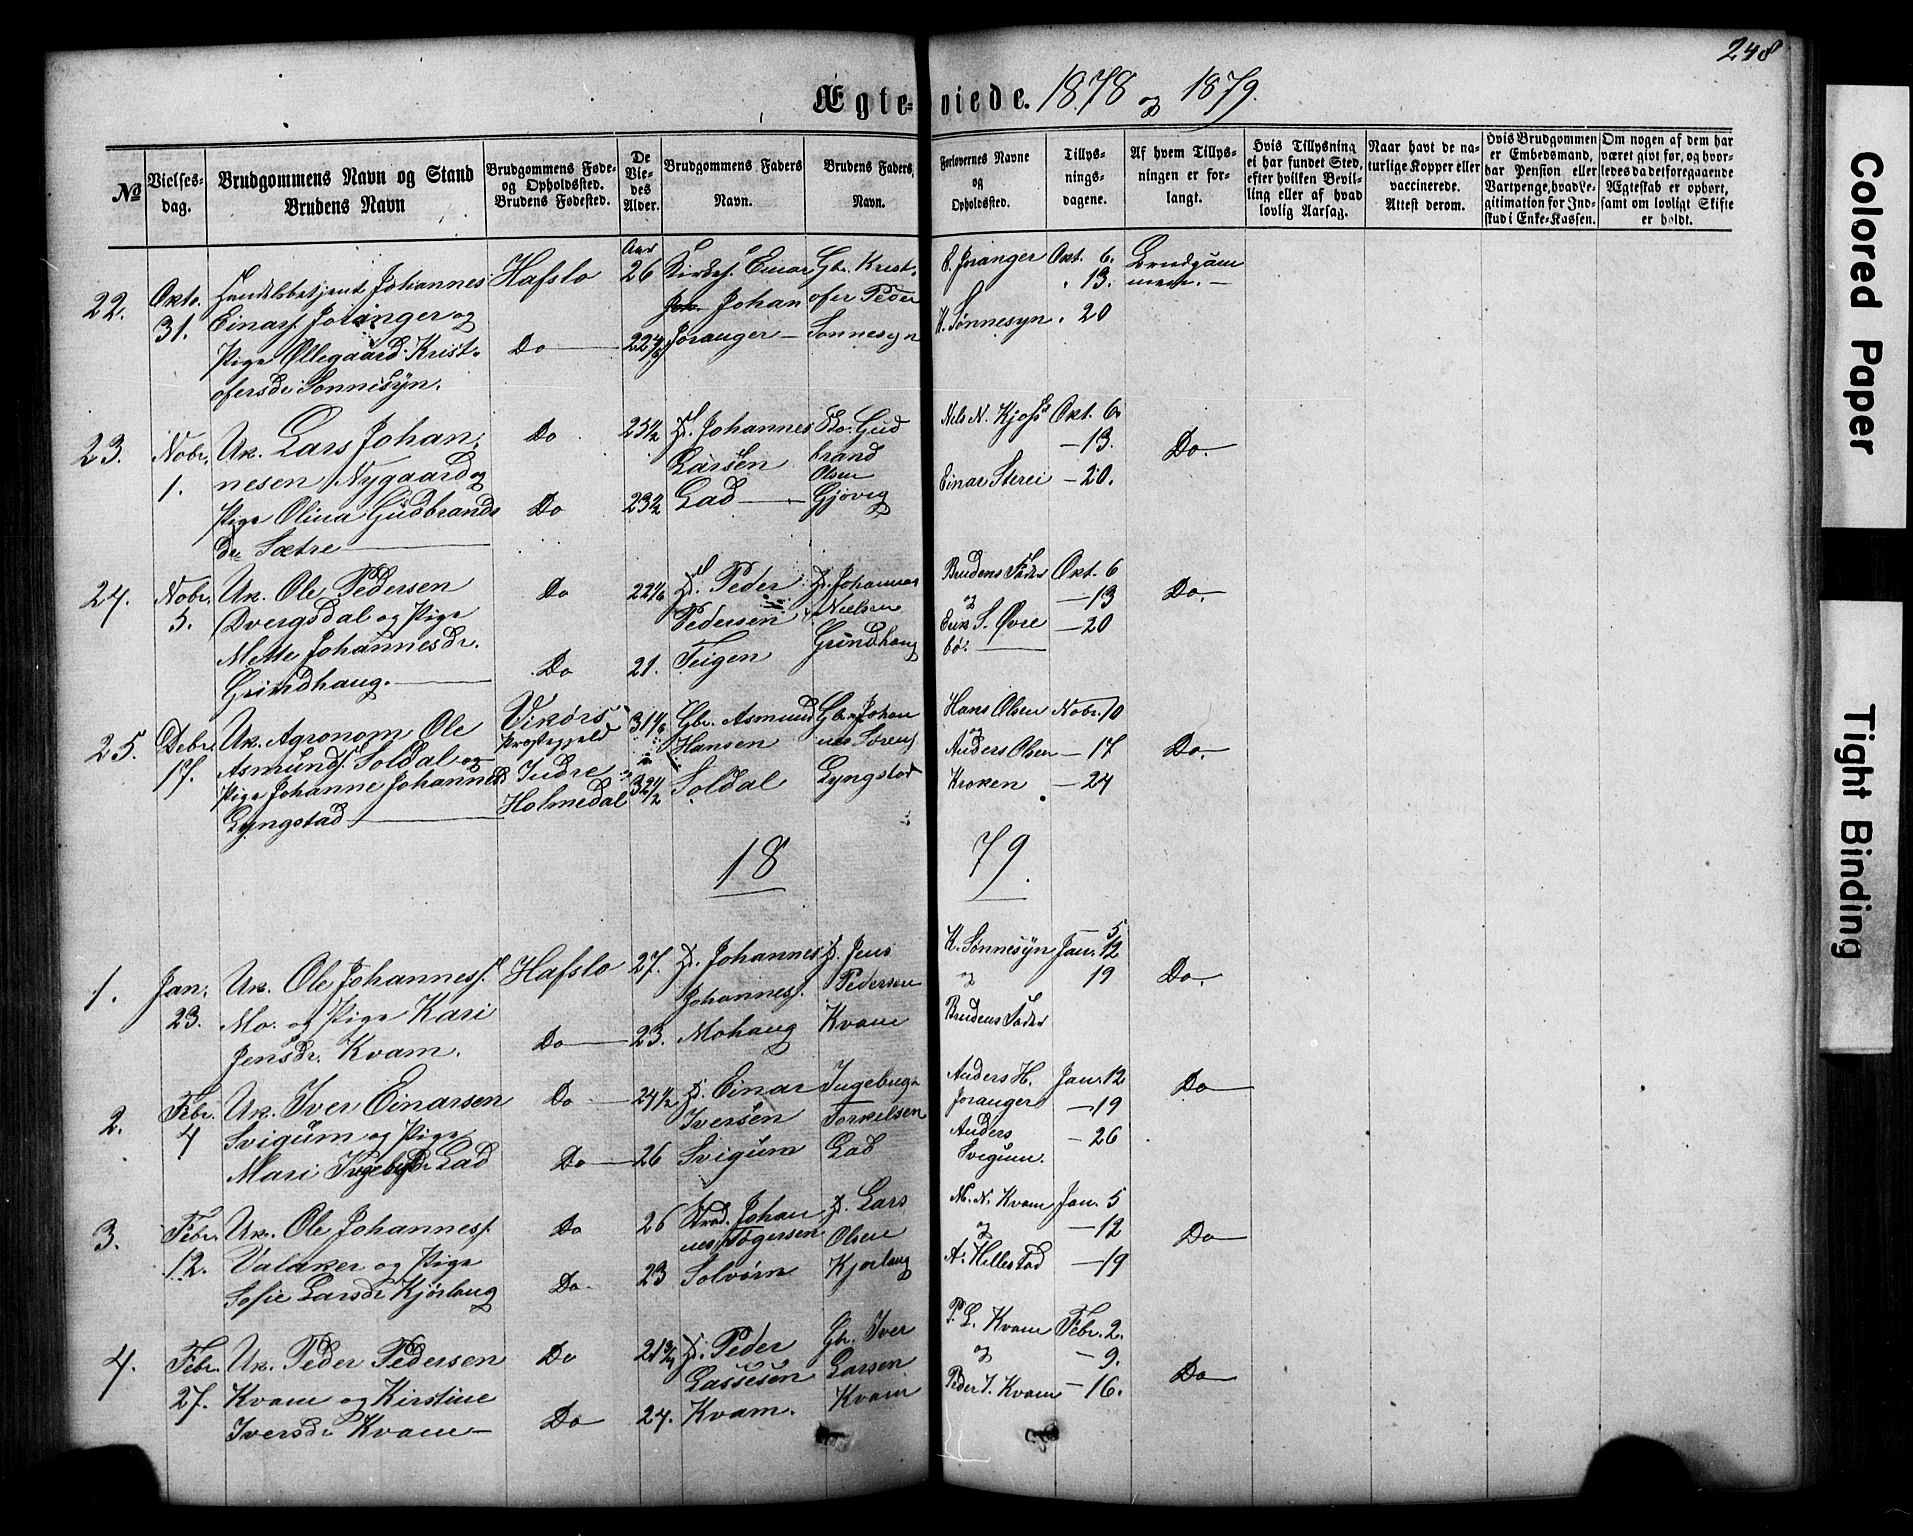 248
Ægteviede. 1878 og 1879.
№
Vielses-dag.
Brudgommens Navn og Stand
Brudens Navn
Brudgommens Føde- og Opholdssted.
Brudens Fødested.
De Viedes Alder.
Brudgommens Faders Navn.
Brudens Faders Navn.
Forlovernes Navne og Opholdssted.
Tillys-nings-dagene.
Af hvem Tillys-ningen er for-langt.
Hvis Tillysning ei har fundet Sted, efter hvilken Bevil-ling eller af hvad lovlig Aarsag.
Naar havt de na-turlige Kopper eller vaccinerede. Attest derom.
Hvis Brudgommen er Embedsmand, har Pension eller Vartpenge, hvad Le-gitimation for Ind-skud i Enke-Kassen.
Om nogen af dem har været gift før, og hvor-ledes da det foregaaende Ægteskab er ophørt, samt om lovligt Skifte er holdt.
22. Okto. 31.
Handelsbetjent Johannes
Einars. Joranger og
Pige Ollegaard Krist-
ofersdr Sonnesyn.
Hafslo
Do
Aar
26
Einar
Johan
Joranger
Gbr. Krist-
ofer Peder
Sonnesyn
E. Joranger
K. Sønnesyn
Okt. 6.
" 13.
" 20
Brudgom
men.
23. Nobr. 1.
Uk. Lars Johan-
nesen Nygaard og
Pige Olina Gudbrands
dr Sætre
Do
Do
25 1/2
23 1/2
Johannes
Larsen
Lad
Gud
brand
Olsen
Gjövig
Nels N. Kjos
Einar Sterei
Okt. 6
13.
20.
Do.
24. Nobr. 5.
Uk. Ole Pedersen
Dvergsdal og Pige
Mette Johannesdr.
Grindhaug.
Do
Do
21.
Peder
Pedersen
Teigen
Johannes
Nielsen
Grindhaug
Brudens Fader
og
Erik S. Øvre
bö.
Okt. 6
13
20
Do.
25. Debr. 17.
Uk. Agronom Ole
Asmunds. Soldal og
Pige Johanne Johannesd
Lyngstad
Vikörs
Prestegjeld
Indre
Holmedal
32 1/2
Gbr. Asmund
Hansen
Soldal
Gbr. Johan
nes Sörens
Lyngstad
Hans Olsen
og
Anders Olsen
Kroken
Nobr. 10
17
24
Do.
18 79.
1. Jan. 23.
Uk. Ole Johanness.
Mo. og Pige Kari
Jensdr. Kvam.
Hafslo
Do
27.
23.
Johannes
Johanness.
Mohaug
Jens
Pedersen
Kvam
K. Sønnesyn
og
Brudens Fader
Jan. 5
12
19
Do.
2. Febr. 4
Uk. Iver Einarsen
Svigum og Pige
Mari Ingebrgdr Lad
Do
Do
24 1/2
26
Einar
Iversen
Svigum
Ingebrigt
Torkelsen
Lad
Anders H.
Joranger
Anders
Svigum.
Jan. 12
19
26
Do
3. Febr. 12.
Uk. Ole Johanness.
Valaker og Pige
Sofie Larsdr Kjörlaug
Do
Do
26
23
Johan
nes Togersen
Solvorn
Lars
Olsen
Kjörlaug
N. N. Kvam
og
A. Hillestad
Jan. 5
12
19
Do
4. Febr. 27.
Uk. Peder Pedersen
Kvam og Kirstine
Iversdr Kvam
Do
Do
21 3/4
24.
Peder
Lassesen
Kvam.
Gbr. Iver
Larsen
Kvam
P. L. Kvam
og
Peder I. Kvam
Febr. 2.
9.
16.
Do
Colored Paper
Tight Binding